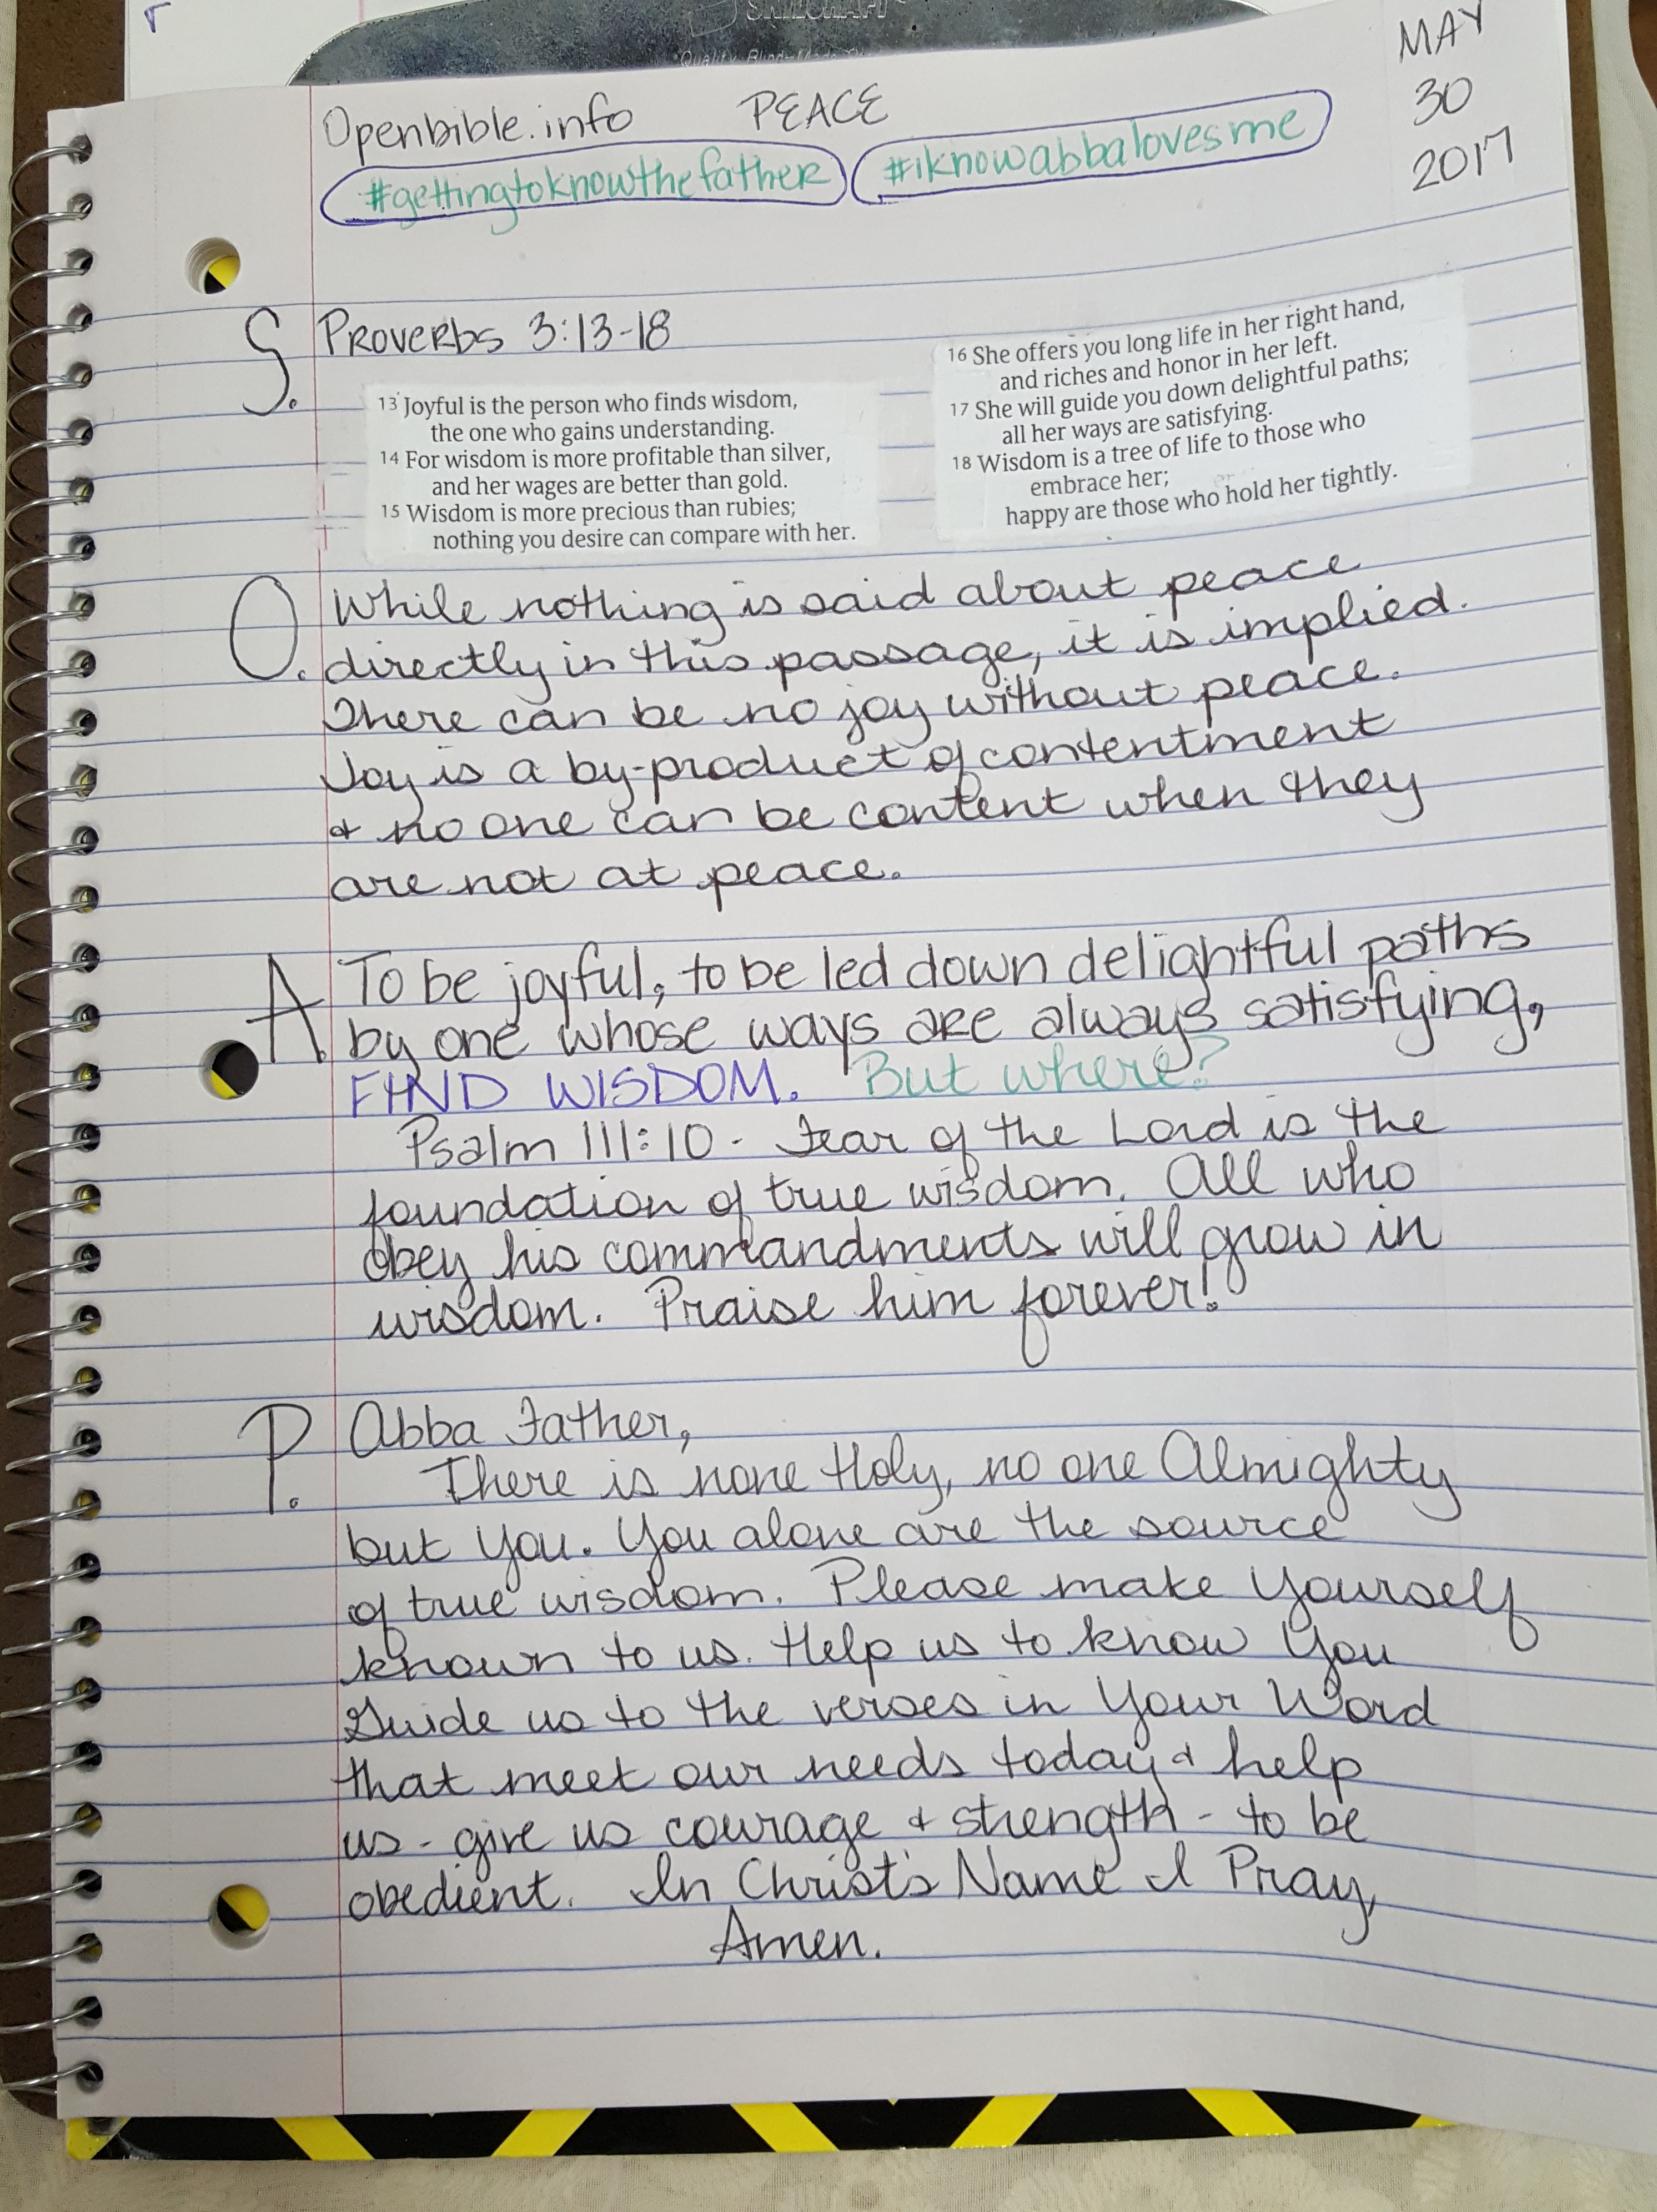 SKILCRAFT
Openbible.info PEACE
MAY
30
2017
#gettingtoknowthefather #iknowabbalovesme
S. Proverbs 3:13-18
13 Joyful is the person who finds wisdom,
the one who gains understanding.
14 For wisdom is more profitable than silver,
and her wages are better than gold.
15 Wisdom is more precious than rubies;
nothing you desire can compare with her.
16 She offers you long life in her right hand,
and riches and honor in her left.
17 She will guide you down delightful paths;
all her ways are satisfying.
18 Wisdom is a tree of life to those who
embrace her;
happy are those who hold her tightly.
O. While nothing is said about peace
directly in this passage, it is implied.
There can be no joy without peace.
Joy is a by-product of contentment
& no one can be content when they
are not at peace.
A. To be joyful, to be led down delightful paths
by one whose ways are always satisfying,
FIND WISDOM. But where?
Psalm 111:10 - Fear of the Lord is the
foundation of true wisdom. All who
obey his commandments will grow in
wisdom. Praise him forever!
P. Abba Father,
There is none Holy, no one Almighty
but You. You alone are the source
of true wisdom. Please make Yourself
known to us. Help us to know You
Guide us to the verses in Your Word
that meet our needs today & help
us - give us courage & strength - to be
obedient. In Christ's Name I Pray,
Amen.